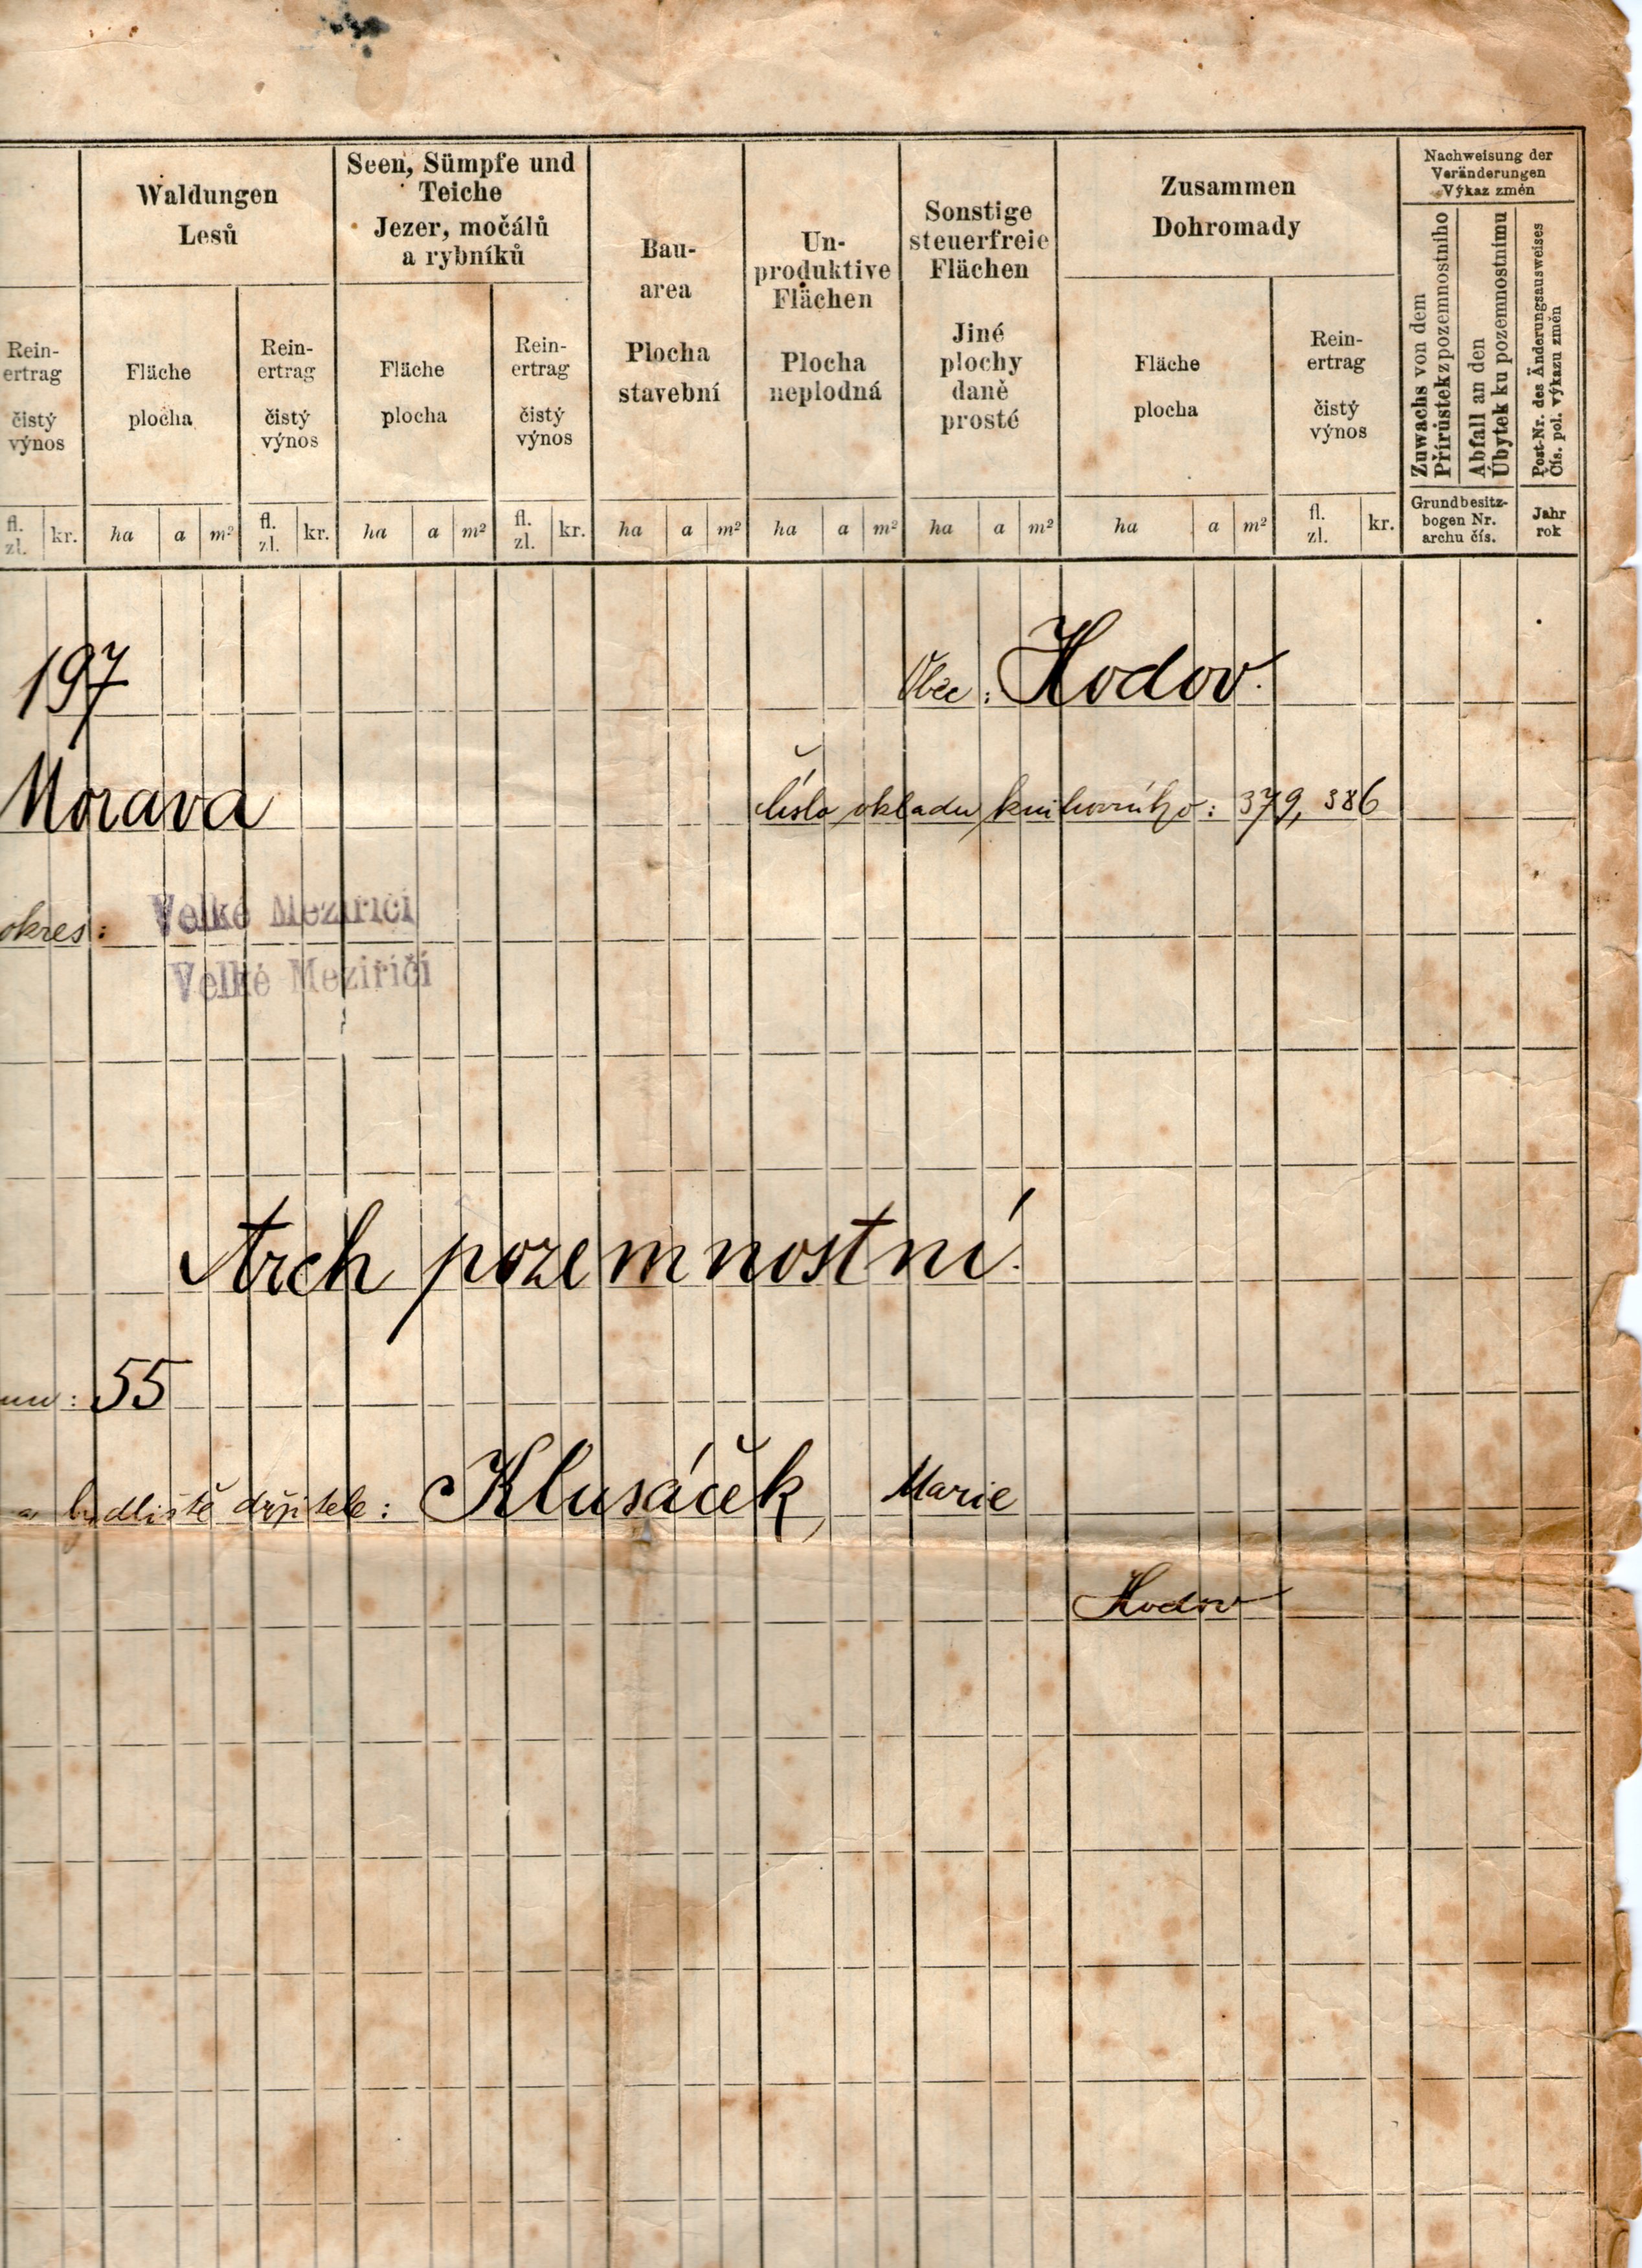 Rein-
ertrag
čistý
výnos
fl.
zl.
kr.
Waldungen
Lesů
Fläche
plocha
ha
a
m²
Rein-
ertrag
čistý
výnos
fl.
zl.
kr.
Seen, Sümpfe und
Teiche
Jezer, močálů
a rybníků
Fläche
plocha
ha
a
m²
Rein-
ertrag
čistý
výnos
fl.
zl.
kr.
Bau-
area
Plocha
stavební
ha
a
m²
Un-
produktive
Flächen
Plocha
neplodná
ha
a
m²
Sonstige
steuerfreie
Flächen
Jiné
plochy
daně
prosté
ha
a
m²
Zusammen
Dohromady
Fläche
plocha
ha
a
m²
Rein-
ertrag
čistý
výnos
fl.
zl.
kr.
Nachweisung der
Veränderungen
Výkaz změn
Zuwachs von dem
Přírůstek z pozemnostního
Abfall an den
Úbytek ku pozemnostnímu
Post-Nr. des Änderungsausweises
Čís. pol. výkazu změn
Grundbesitz-
bogen Nr.
archu čís.
Jahr
rok
197
Obec: Hodov.
Morava
Číslo vkladu knihovního: 379, 386
okres: Velké Meziříčí
Velké Meziříčí
Arch pozemnostní.
55
a bydliště držitele: Klusáček, Marie
Hodov